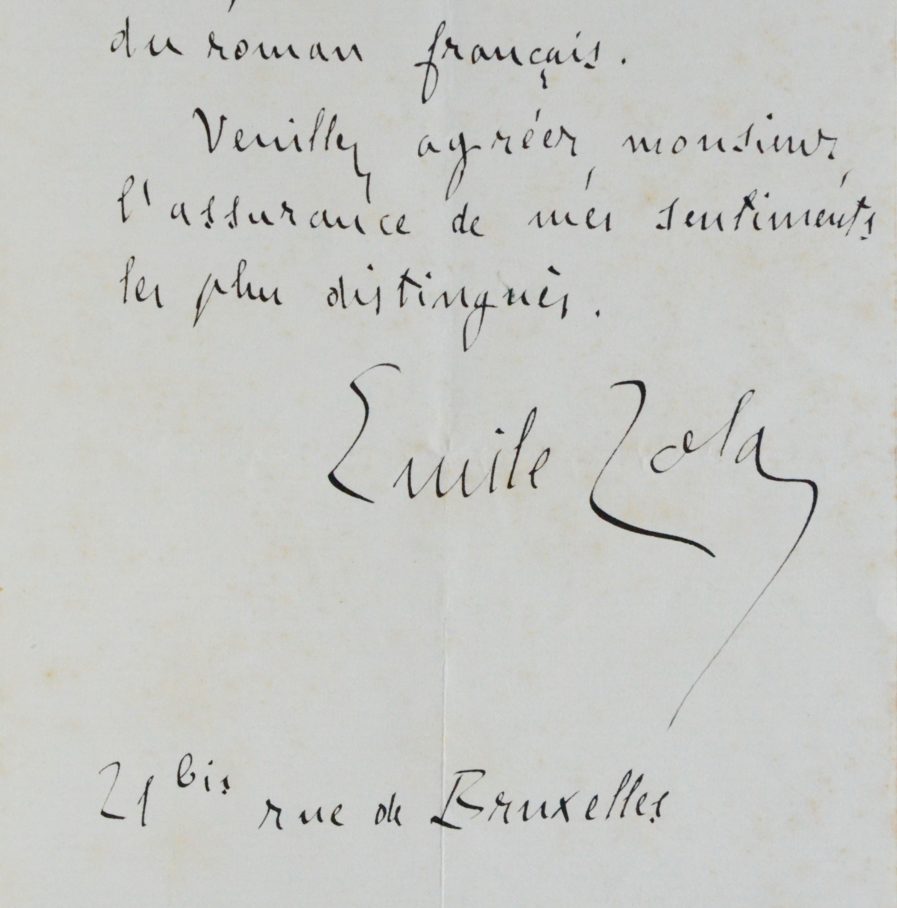 du roman français.
Veuillez agréer, monsieur,
l'assurance de mes sentiments
les plus distingués.
Emile Zola
21 bis rue de Bruxelles